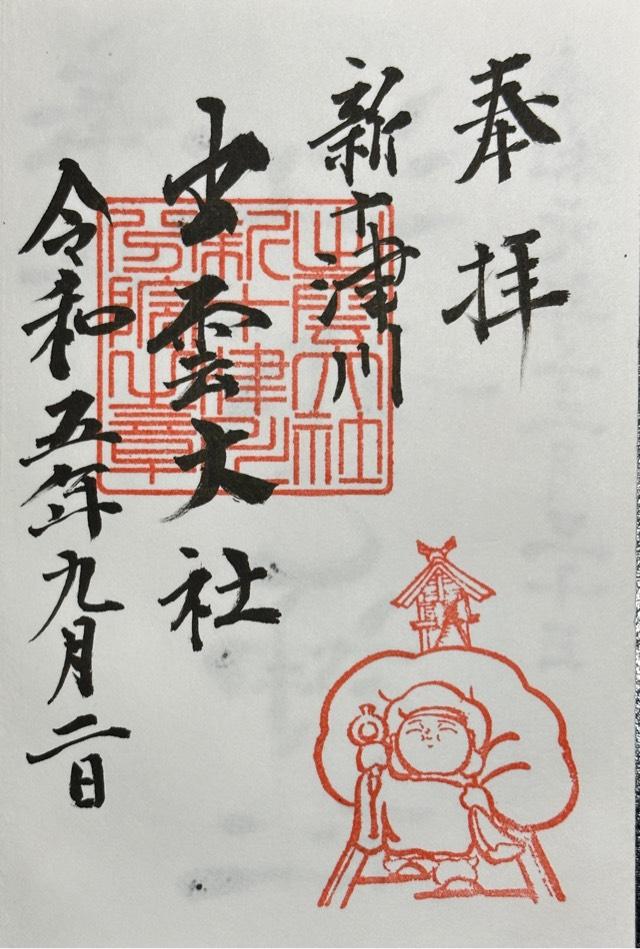 奉拝
新十津川
出雲大社
令和五年九月二日
出雲大社
新十津川
分院之章